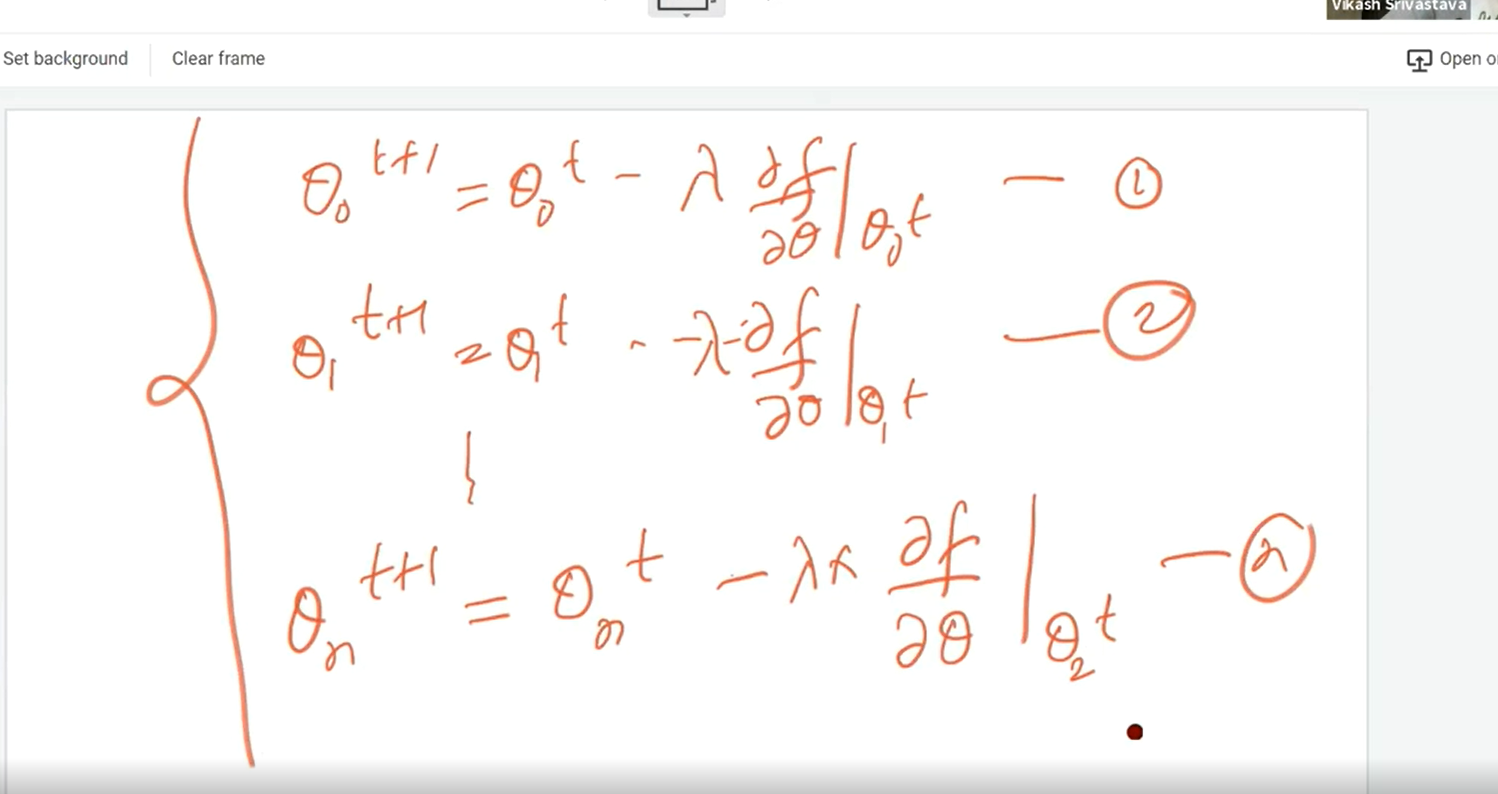 Vikash Srivastava
Set background Clear frame Open o
θ₀ᵗ⁺¹ = θ₀ᵗ - λ ∂f/∂θ |θ₀ᵗ — ①
θ₁ᵗ⁺¹ = θ₁ᵗ - -λ ∂f/∂θ |θ₁ᵗ — ②
θₙᵗ⁺¹ = θₙᵗ - λ× ∂f/∂θ |θ₂ᵗ — ⓝ